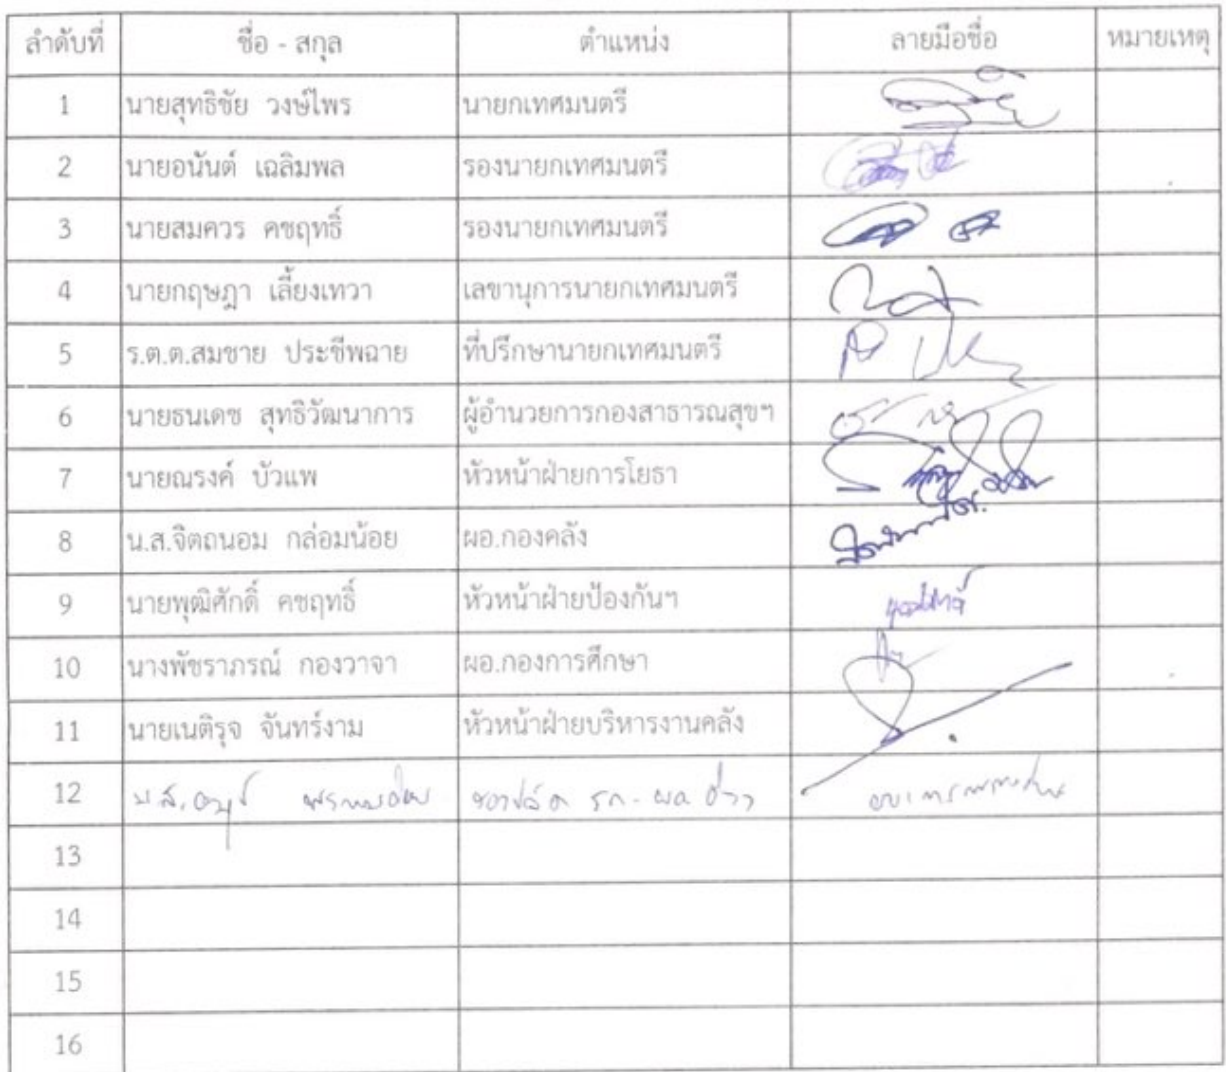 ลำดับที่ ชื่อ - สกุล ตำแหน่ง ลายมือชื่อ หมายเหตุ
1 นายสุทธิชัย วงษ์ไพร นายกเทศมนตรี
2 นายอนันต์ เฉลิมพล รองนายกเทศมนตรี
3 นายสมควร คชฤทธิ์ รองนายกเทศมนตรี
4 นายกฤษฎา เลี้ยงเทวา เลขานุการนายกเทศมนตรี
5 ร.ต.ต.สมชาย ประชีพฉาย ที่ปรึกษานายกเทศมนตรี
6 นายธนเดช สุทธิวัฒนาการ ผู้อำนวยการกองสาธารณสุขฯ
7 นายณรงค์ บัวแพ หัวหน้าฝ่ายการโยธา
8 น.ส.จิตถนอม กล่อมน้อย ผอ.กองคลัง
9 นายพุฒิศักดิ์ คชฤทธิ์ หัวหน้าฝ่ายป้องกันฯ
10 นางพัชราภรณ์ กองวาจา ผอ.กองการศึกษา
11 นายเนติรุจ จันทร์งาม หัวหน้าฝ่ายบริหารงานคลัง
12 น.ส.
13
14
15
16